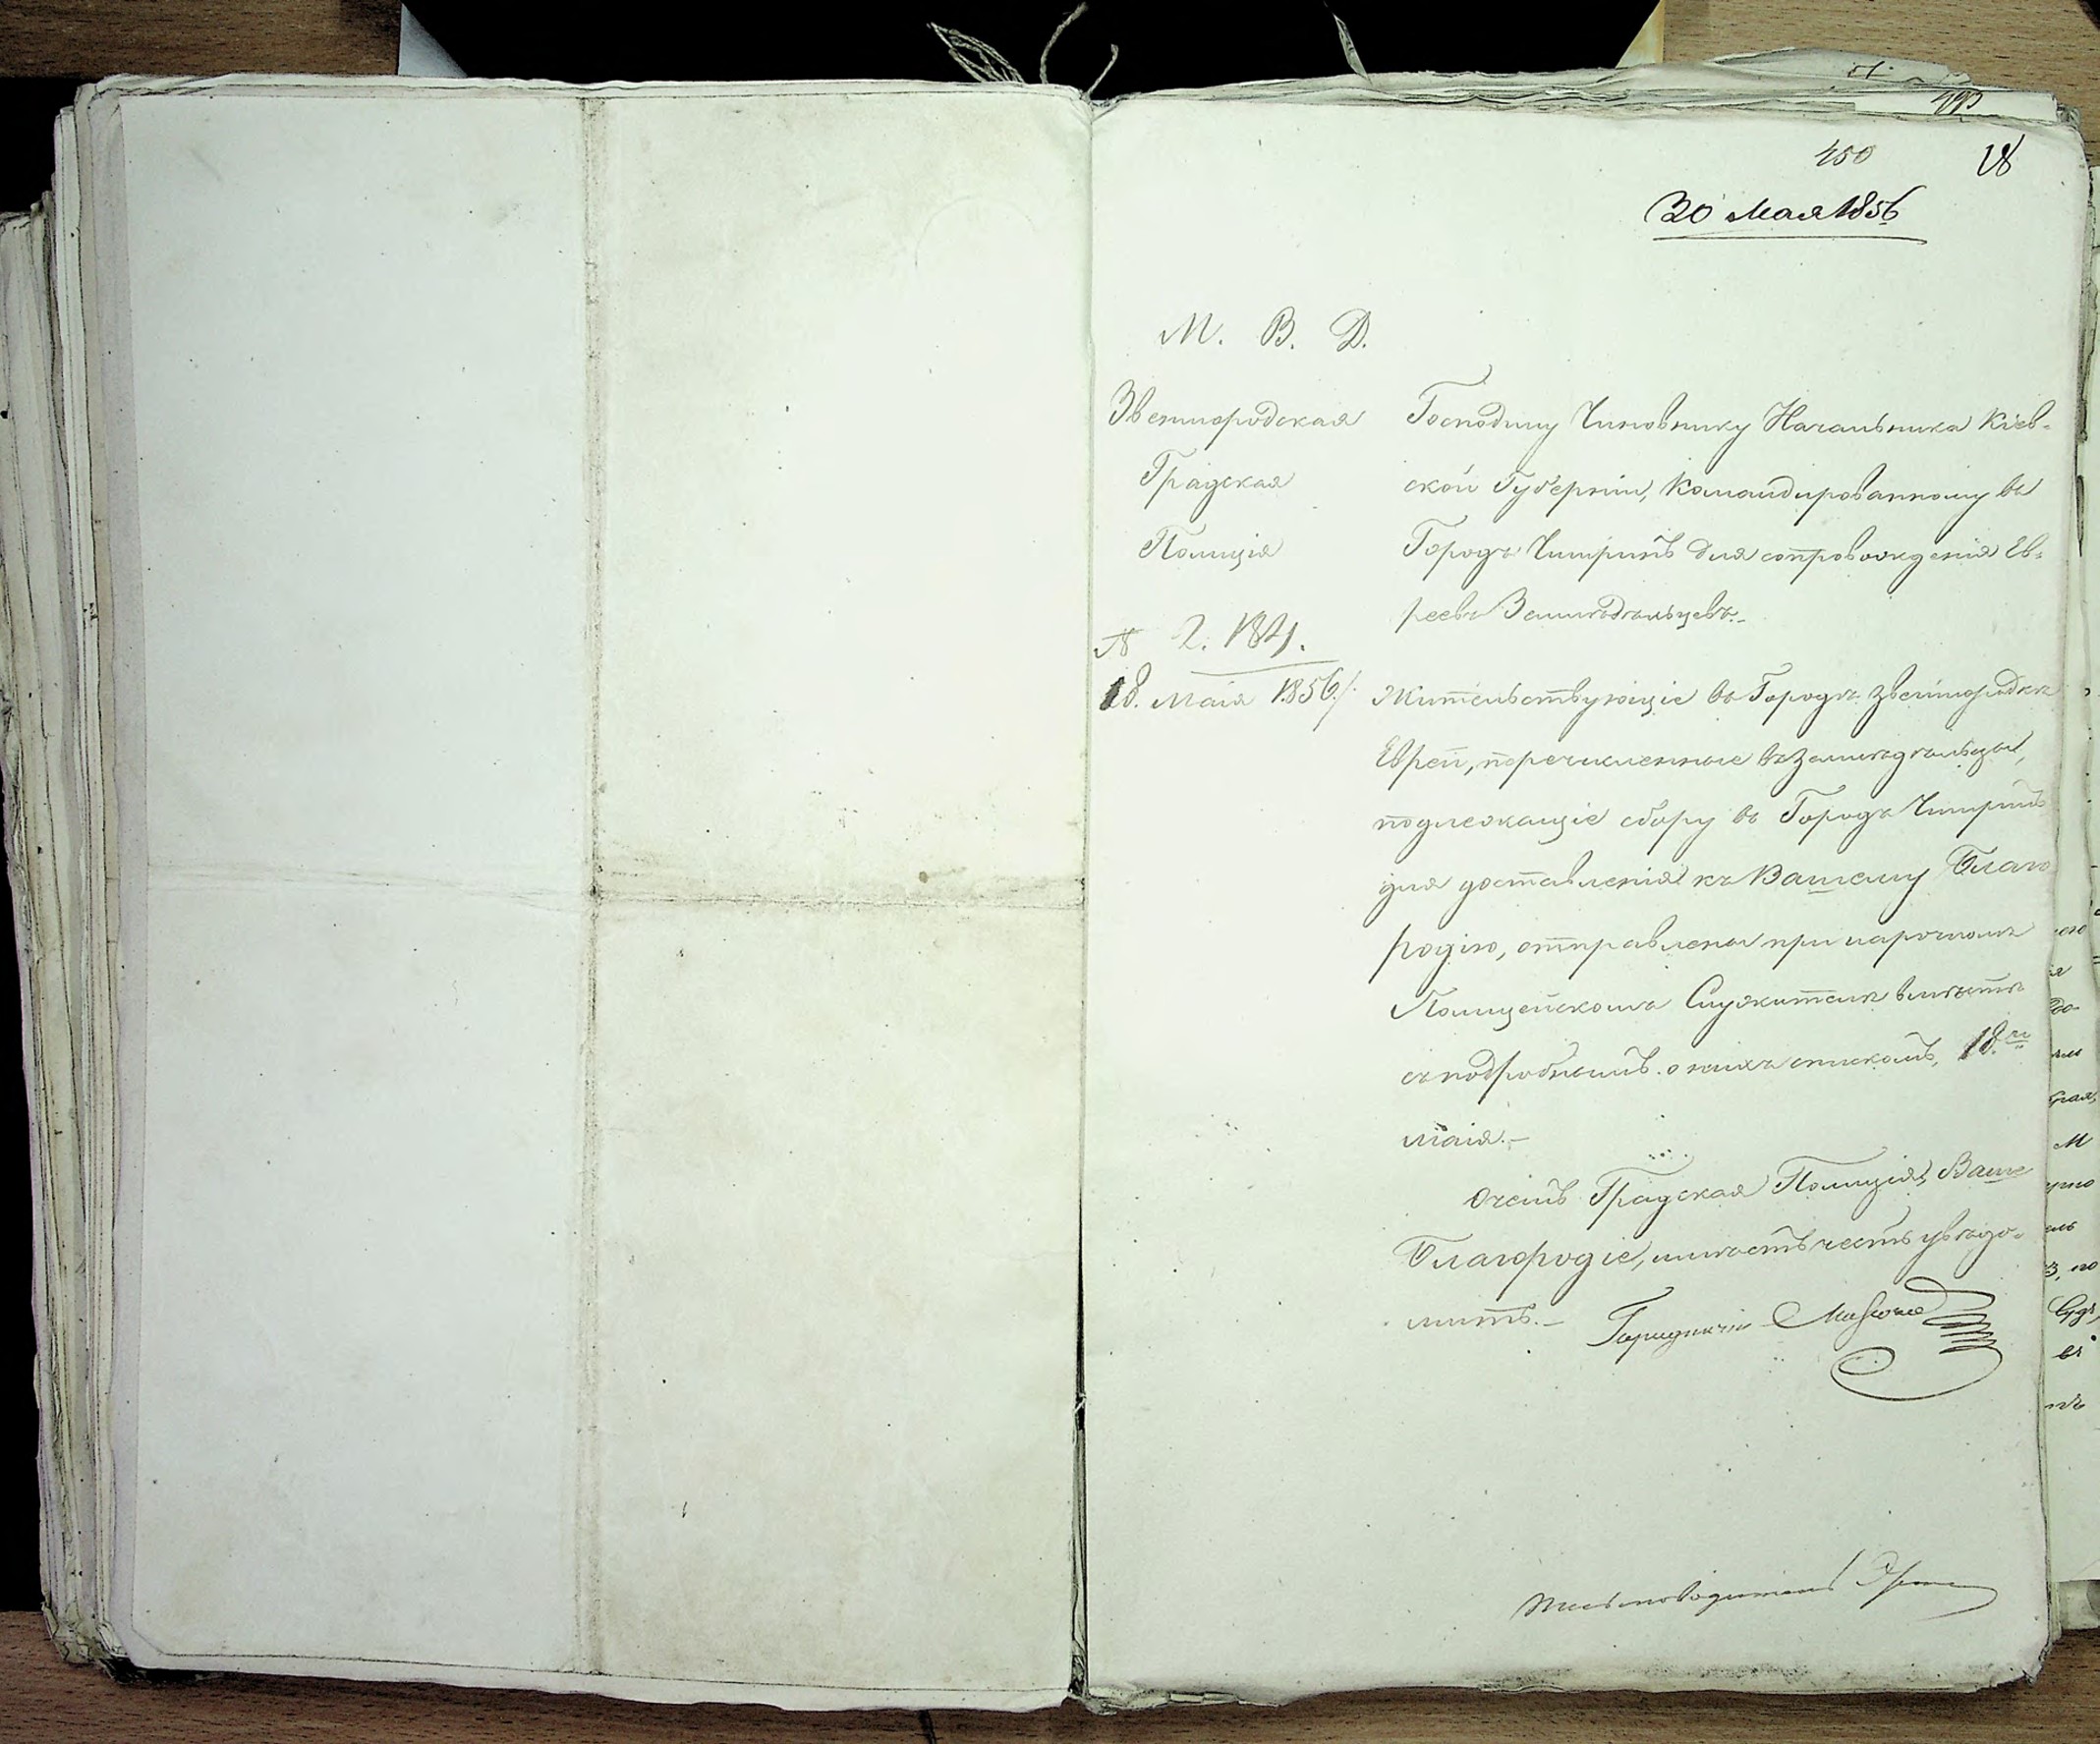 450
18
30 Мая 1856
М. В. Д.
Звенигородская
Градская
Полиція
№ 2.184.
18. Маія 1856./.
Господину Чиновнику Начальника Кіев-
ской Губерніи, Командированному въ
Городъ Чигиринъ для сопровожденія Ев-
реевъ Земледѣльцевъ.-
Жительствующіе въ Городѣ Звенигородкѣ
Евреи, перечисленные въ земледѣльцы,
подлежащіе сбору въ Городъ Чигиринъ
для доставленія къ Вашему Благо
родію, отправлены при нарочномъ
Полицейскомъ Служителѣ вмѣстѣ
съ подробнымъ о нихъ спискомъ, 18.го
маія.-
О чемъ Градская Полиція, Ваше
Благородіе, имѣетъ честь увѣдо-
мить.-
Городничій
Письмоводитель